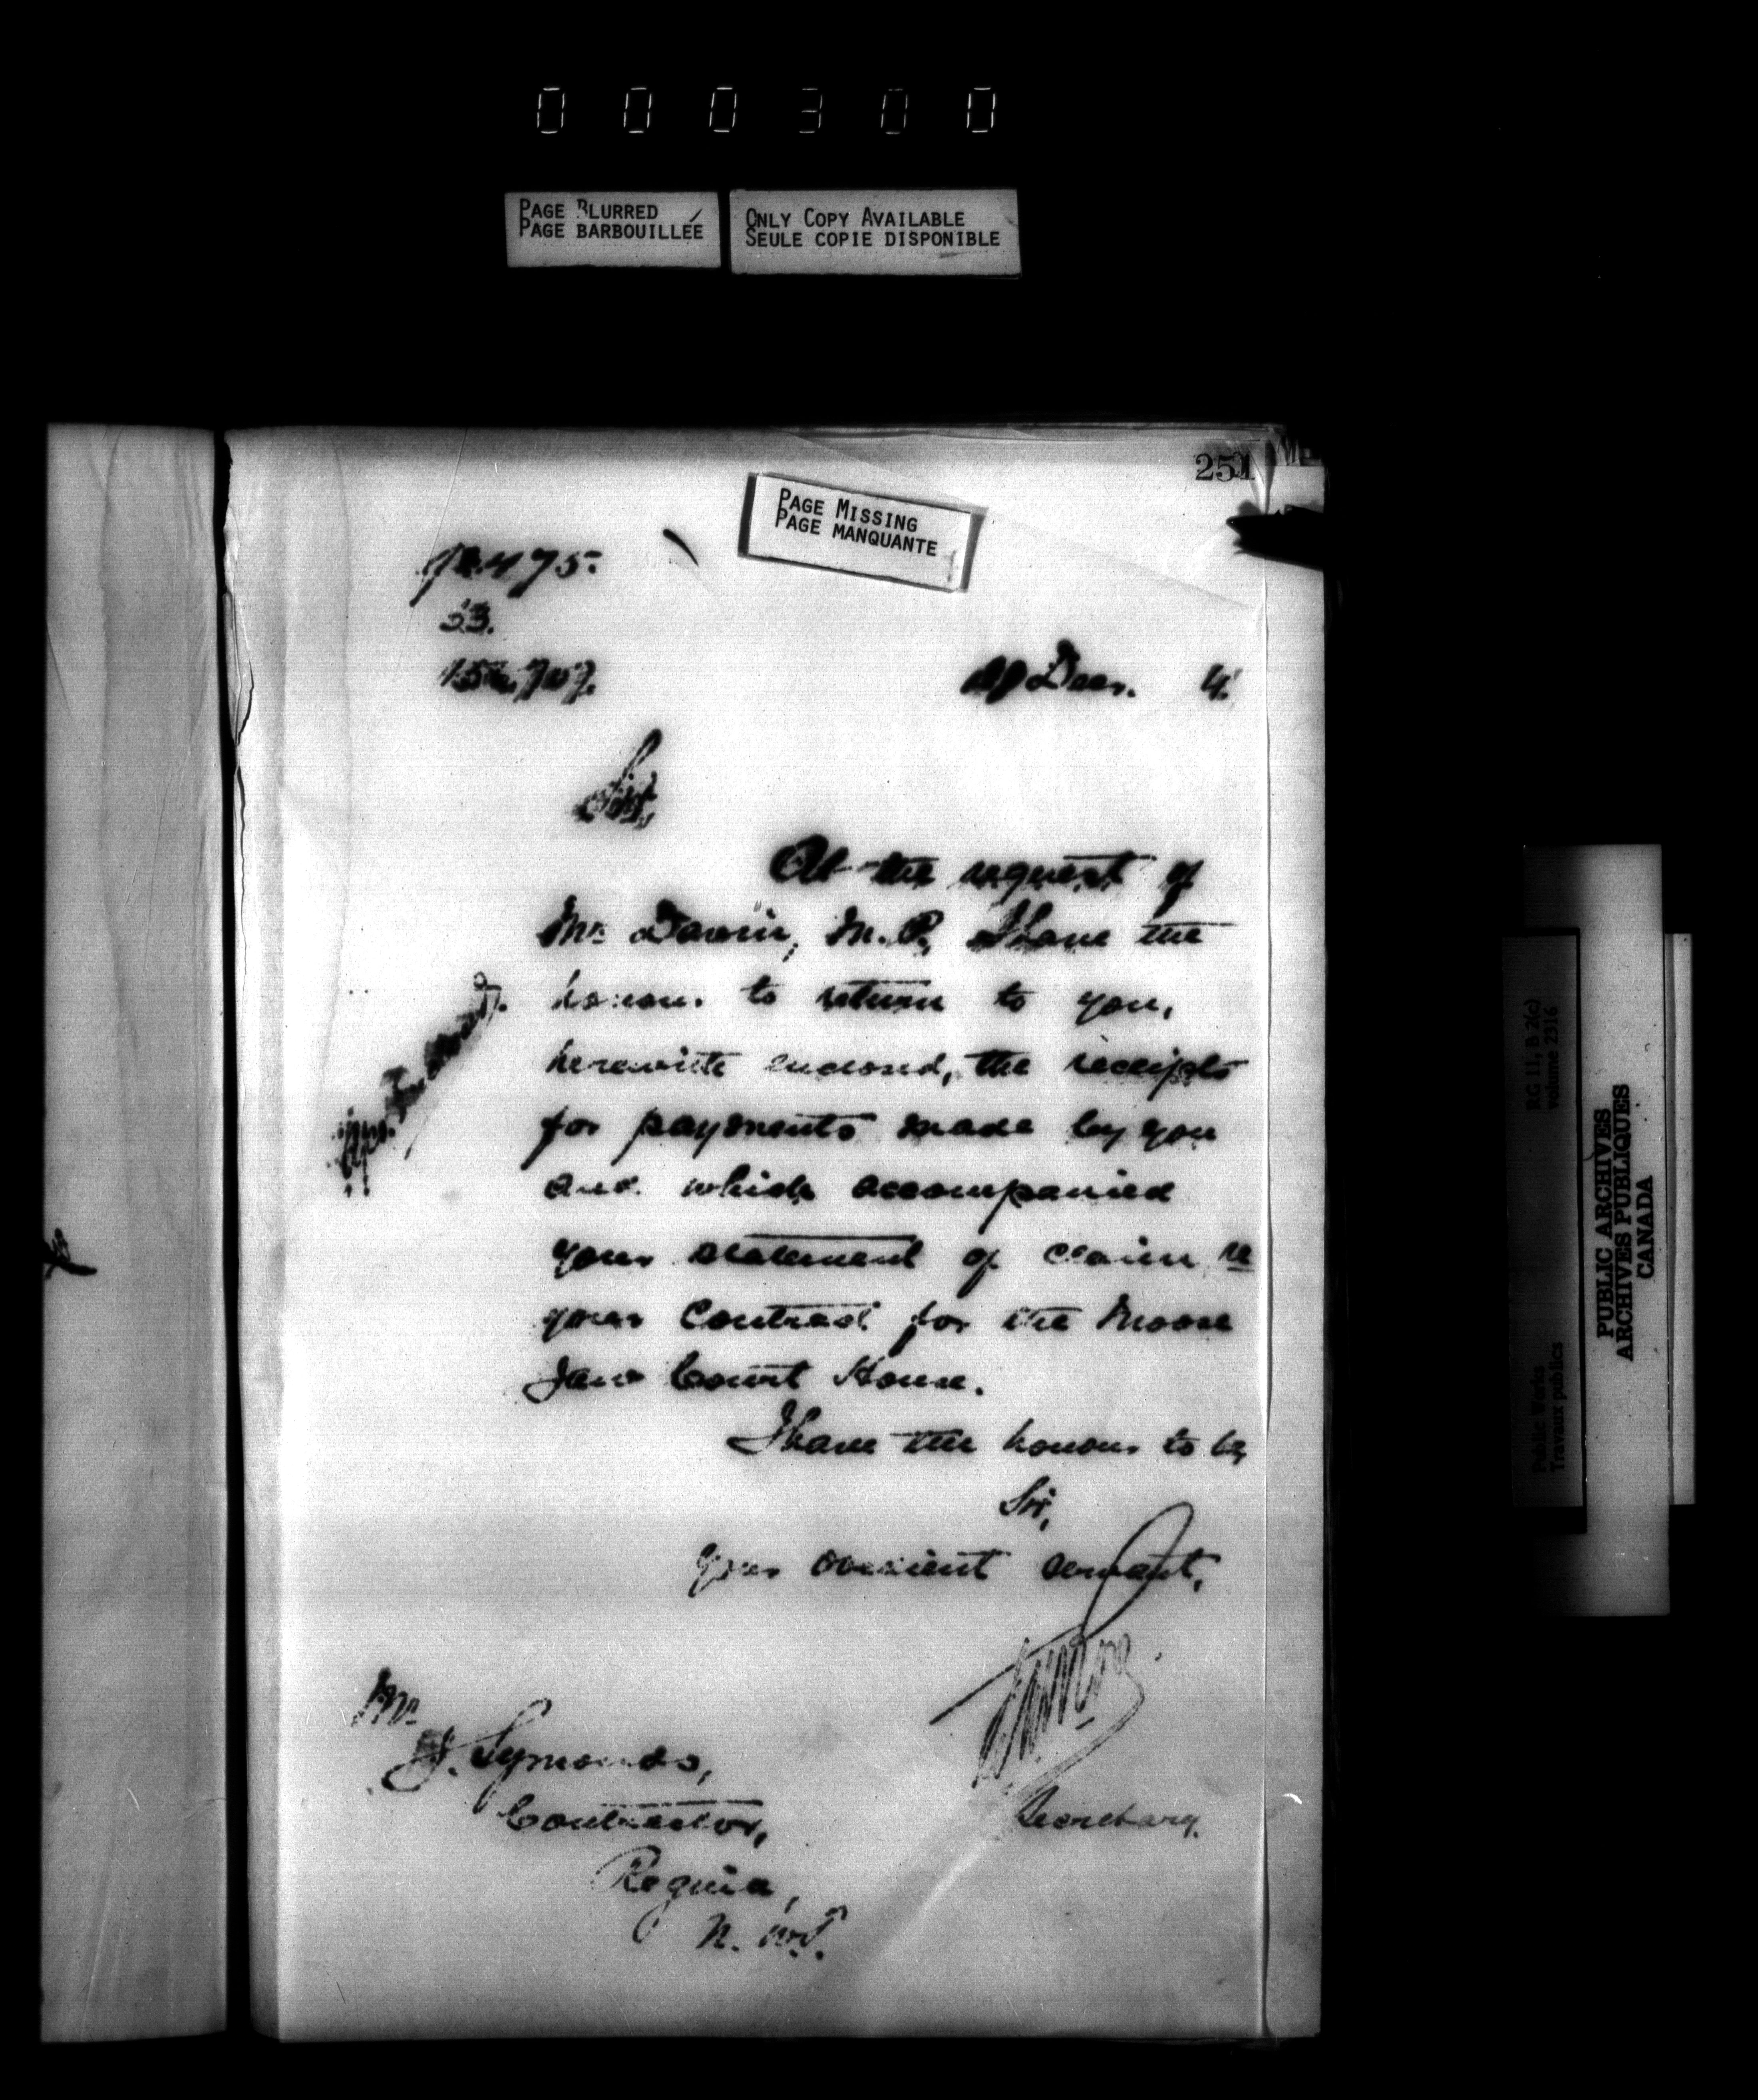 000300
PAGE BLURRED
PAGE BARBOUILLÉE
ONLY COPY AVAILABLE
SEULE COPIE DISPONIBLE
251
PAGE MISSING
PAGE MANQUANTE
475.
33.
Decr. 4.
Sir,
At the request of
Mr. Davin, M.P., I have the
honour to return to you,
herewith enclosed, the receipts
for payments made by you
and which accompanied
your statement of claim re
your Contract for the Moose
Jaw Court House.
I have the honour to be,
Sir,
Your obedient servant,
Secretary.
Mr.
J. Symonds,
Contractor,
Regina,
N.W.T.
RG 11, B 2(c)
volume 2316
Public Works
Travaux publics
PUBLIC ARCHIVES
ARCHIVES PUBLIQUES
CANADA